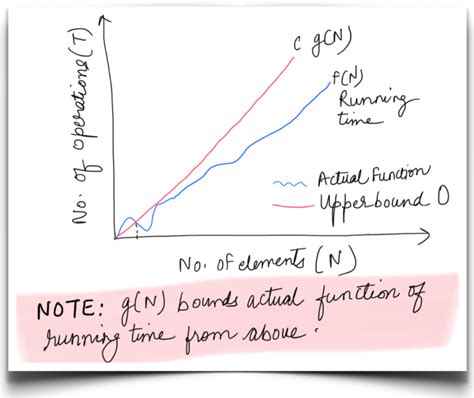 C g(N)
f(N)
Running
time
No. of operations (T)
Actual Function
Upperbound O
No. of elements (N)
NOTE: g(N) bounds actual function of
running time from above.